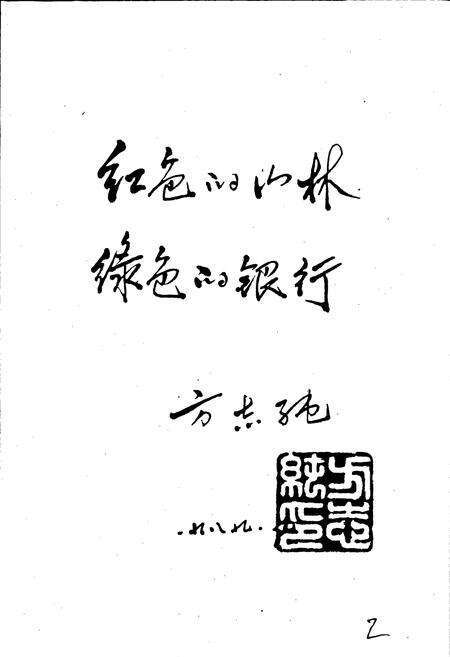 红色的山林
绿色的银行
方志纯
一九八九.
方志纯印
2